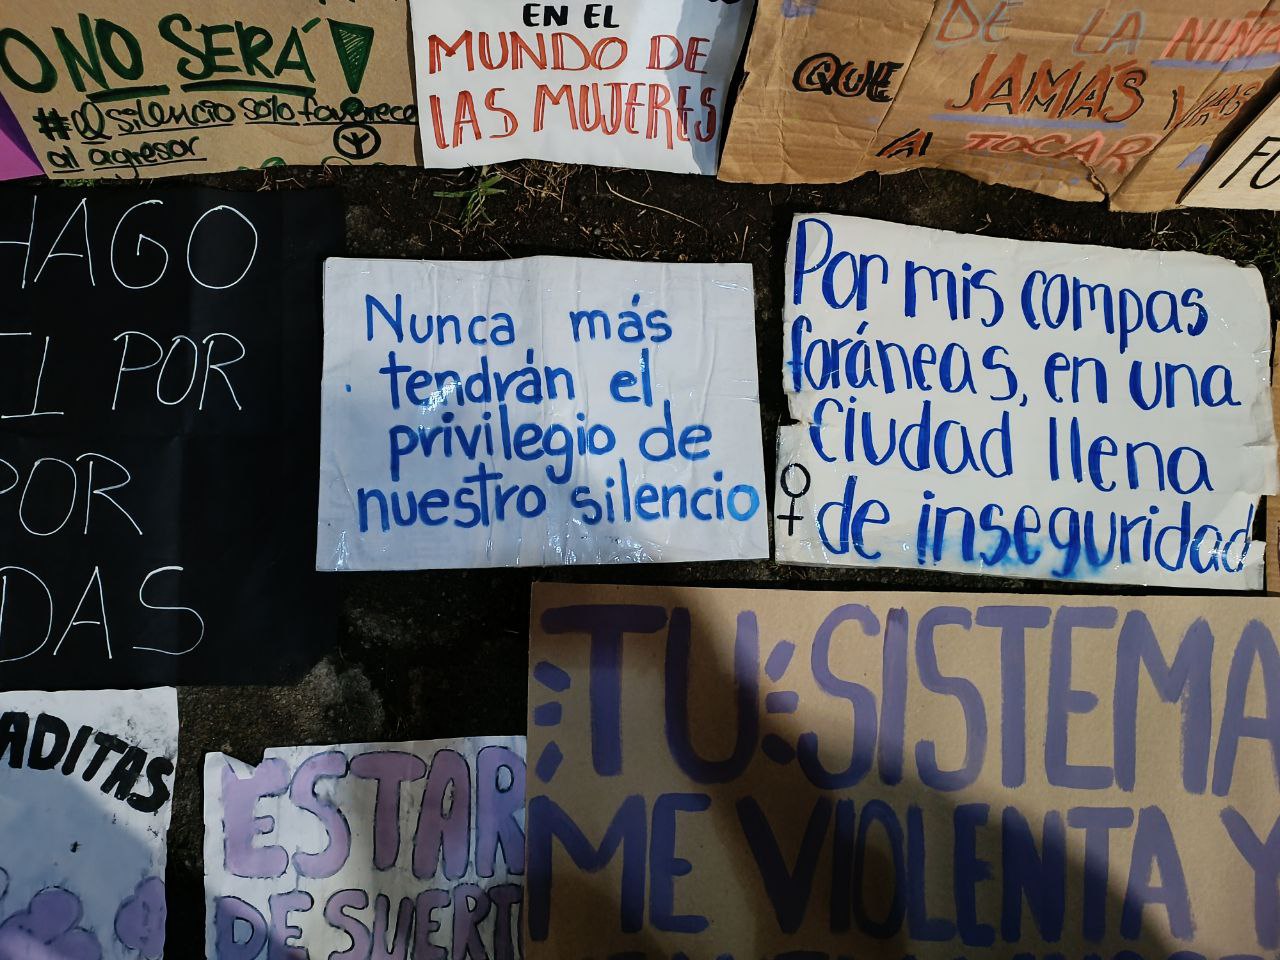 O NO SERÁ!
#El silencio sólo favorece
al agresor
EN EL
MUNDO DE
LAS MUJERES
DE LA NIÑA
QUE JAMÁS
A TOCAR
HAGO
POR
POR
DAS
Nunca más
tendrán el
privilegio de
nuestro silencio
Por mis compas
foráneas, en una
ciudad llena
de inseguridad
ADITAS
ESTAR
DE SUERT
TU SISTEMA
ME VIOLENTA Y